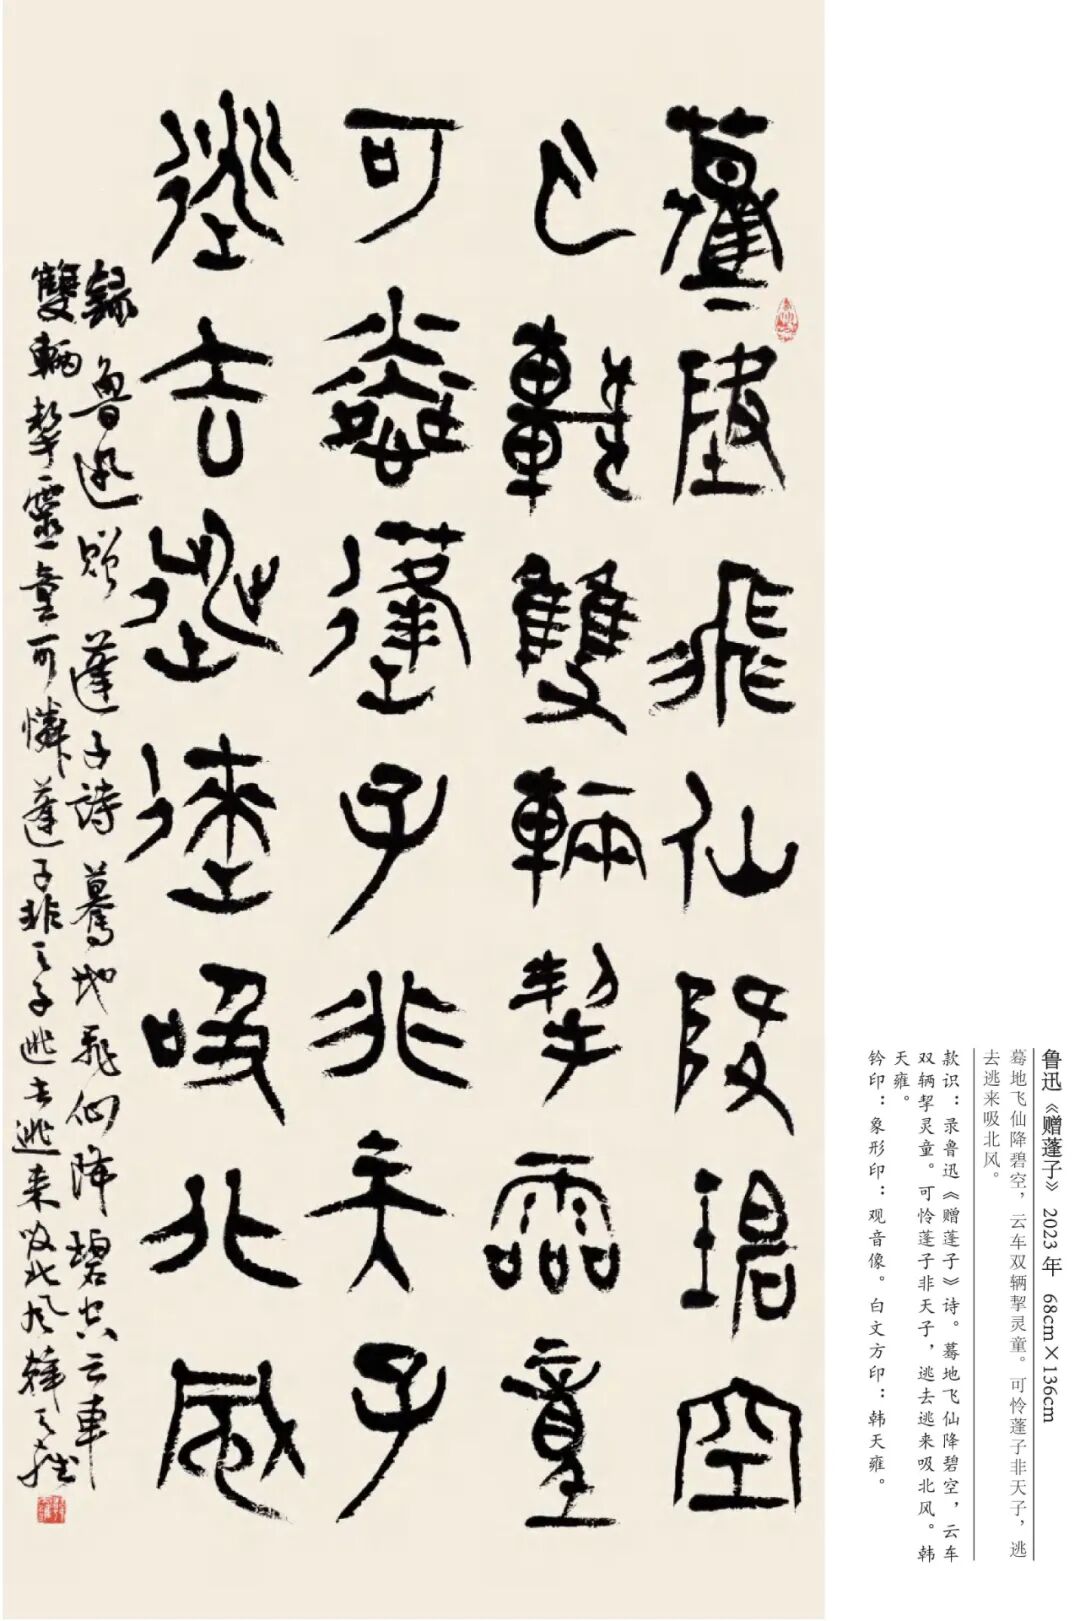 驀地飛仙降碧空
云車雙輛挈靈童
可憐蓬子非天子
逃去逃來吸北風
錄魯迅贈蓬子詩驀地飛仙降碧空云車
雙輛挈靈童可憐蓬子非天子逃去逃来吸北风韓天雍
鲁迅《赠蓬子》 2023年 68cm×136cm
蓦地飞仙降碧空，云车双辆挈灵童。可怜蓬子非天子，逃
去逃来吸北风。
款识：录鲁迅《赠蓬子》诗。蓦地飞仙降碧空，云车
双辆挈灵童。可怜蓬子非天子，逃去逃来吸北风。韩
天雍。
钤印：象形印：观音像。白文方印：韩天雍。